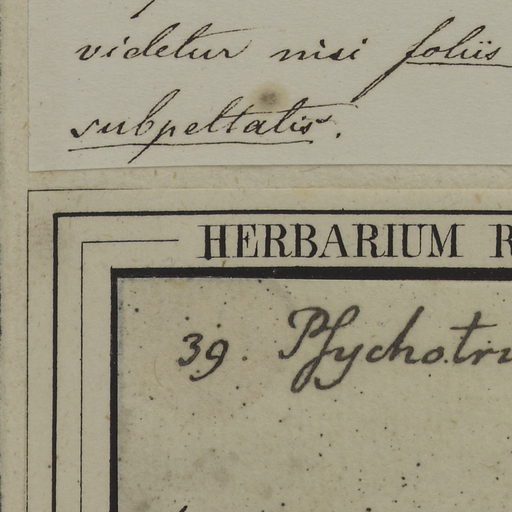 videtur nisi foliis
subpeltatis.
HERBARIUM R
39. Psychotri